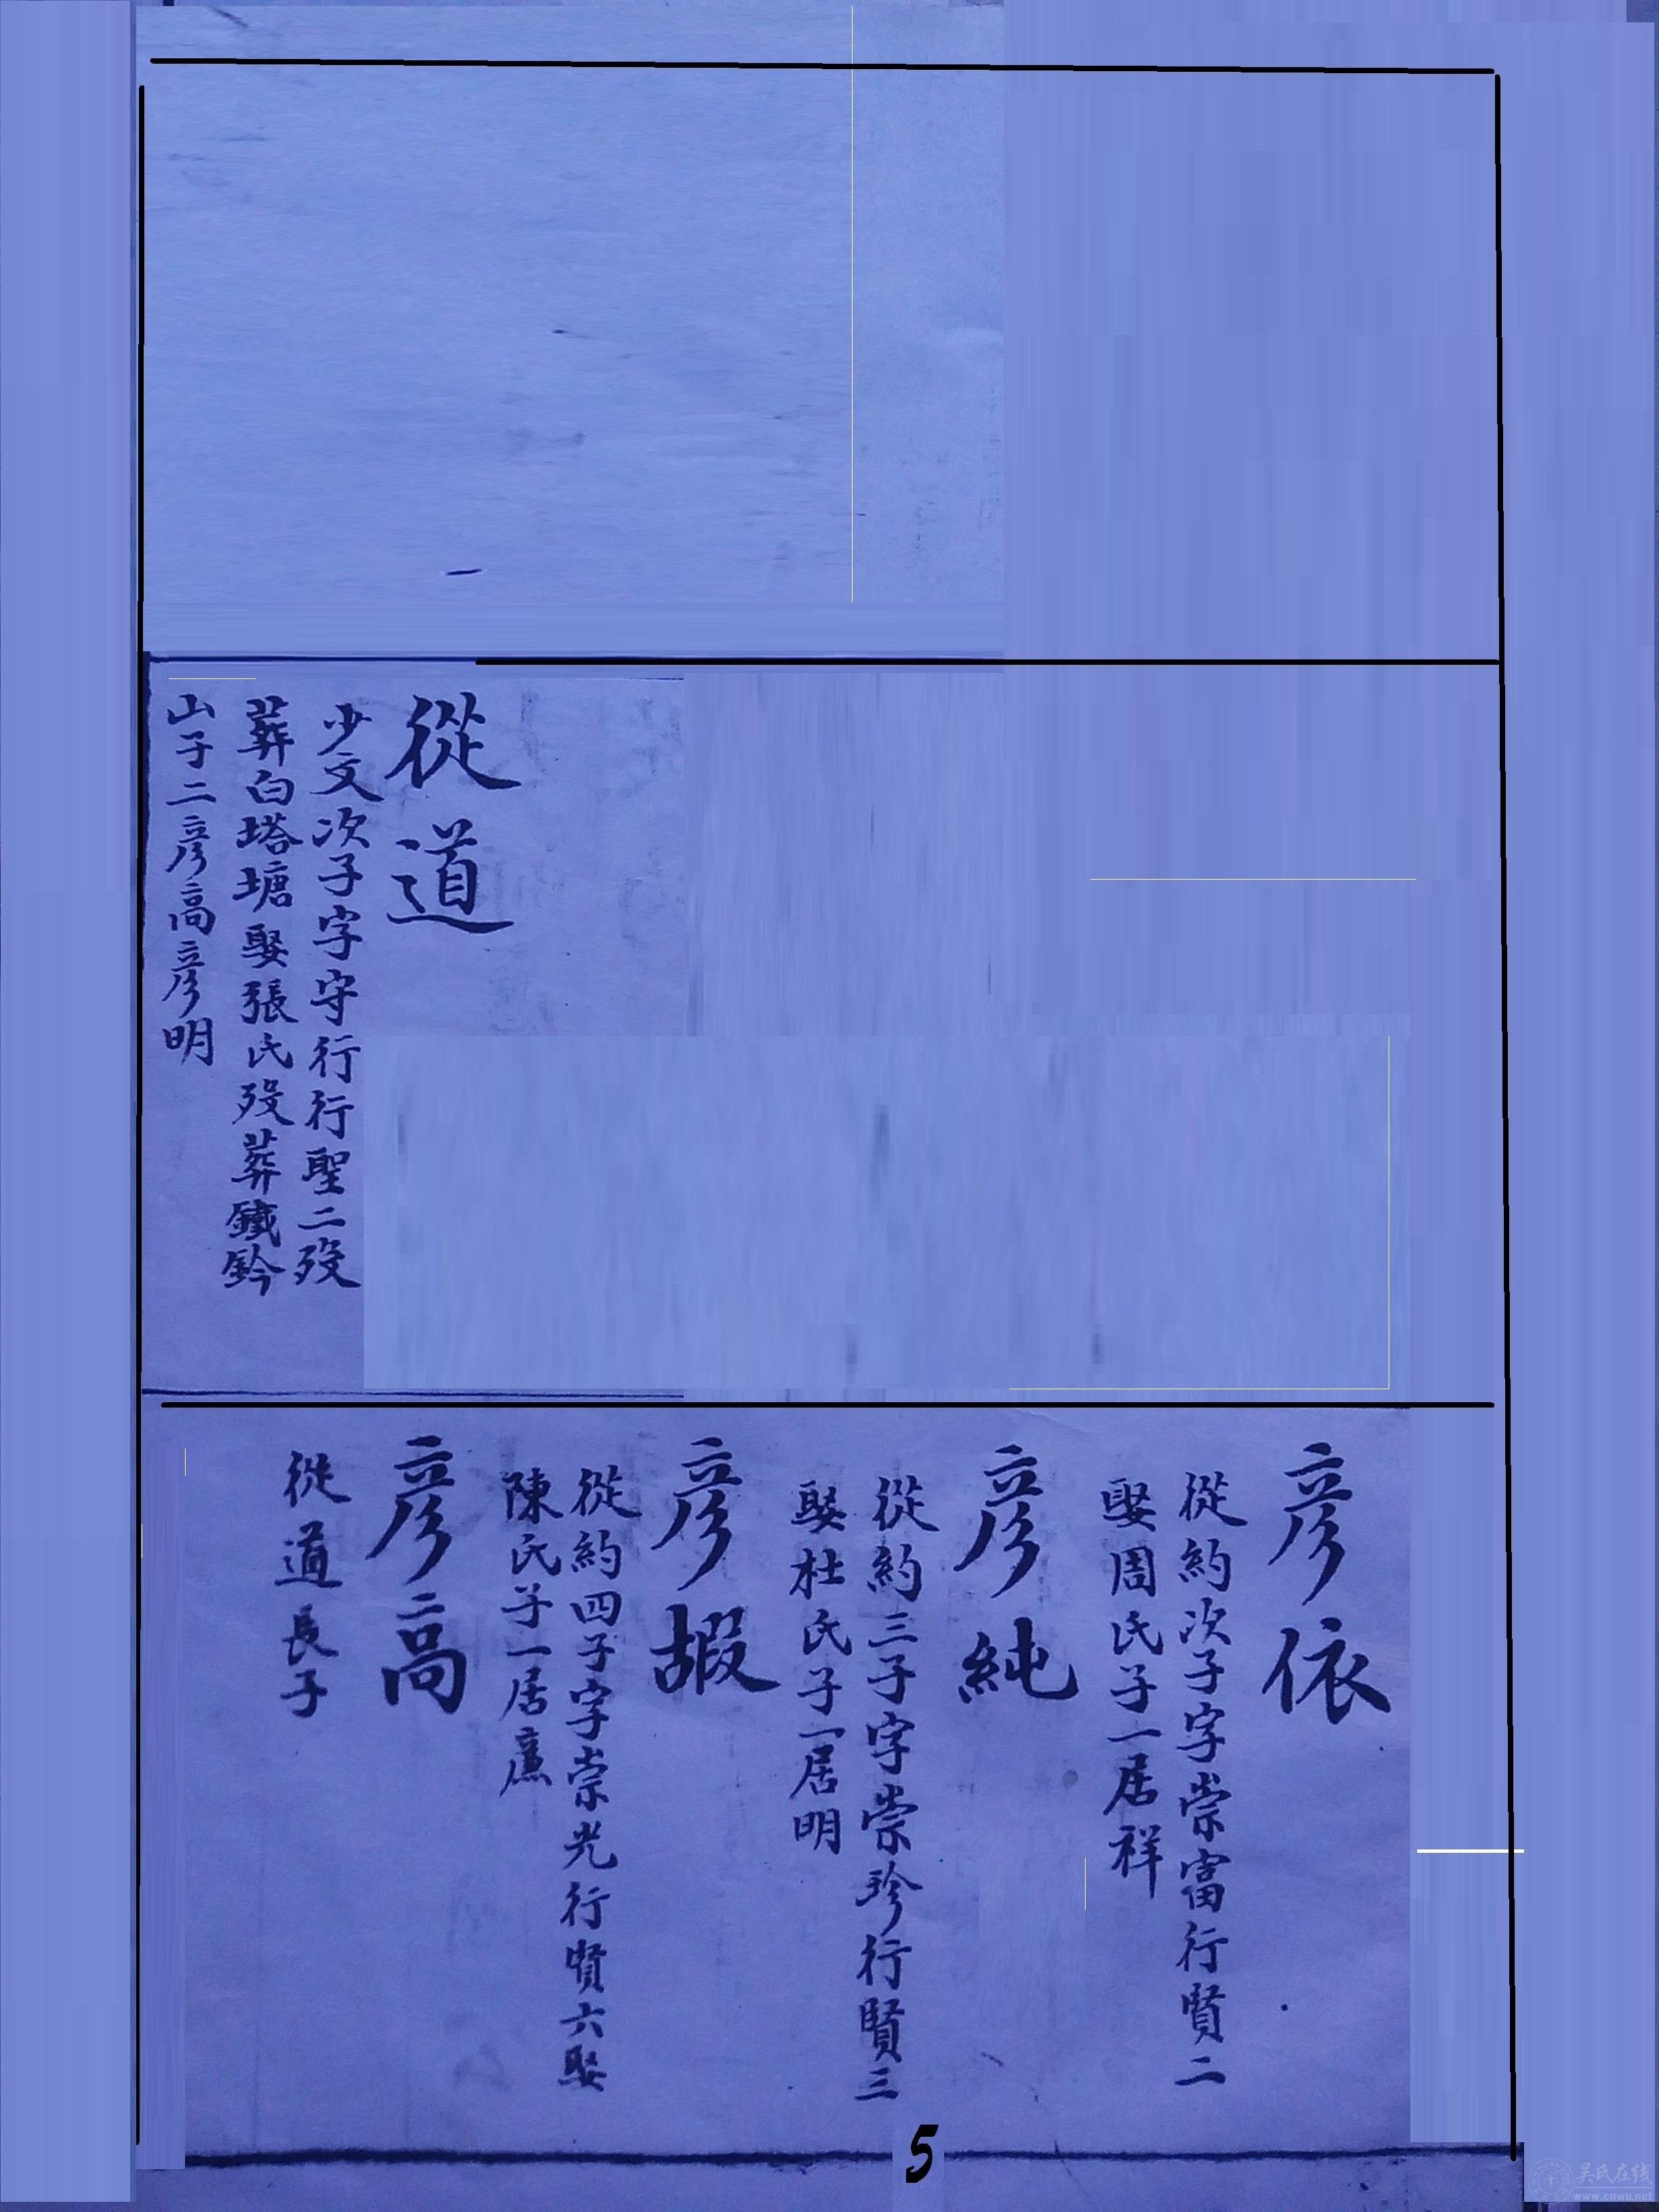 從道
少文次子字守行行聖二歿
葬白塔塘娶張氏歿葬鐵鈐
山子二彦高彦明
彦依
從約次子字崇富行賢二
娶周氏子一居祥
彦純
從約三子字崇珍行賢三
娶杜氏子一居明
彦嘏
從約四子字崇光行賢六娶
陳氏子一居廉
彦高
從道長子
5
吴氏在线
www.cnwu.net